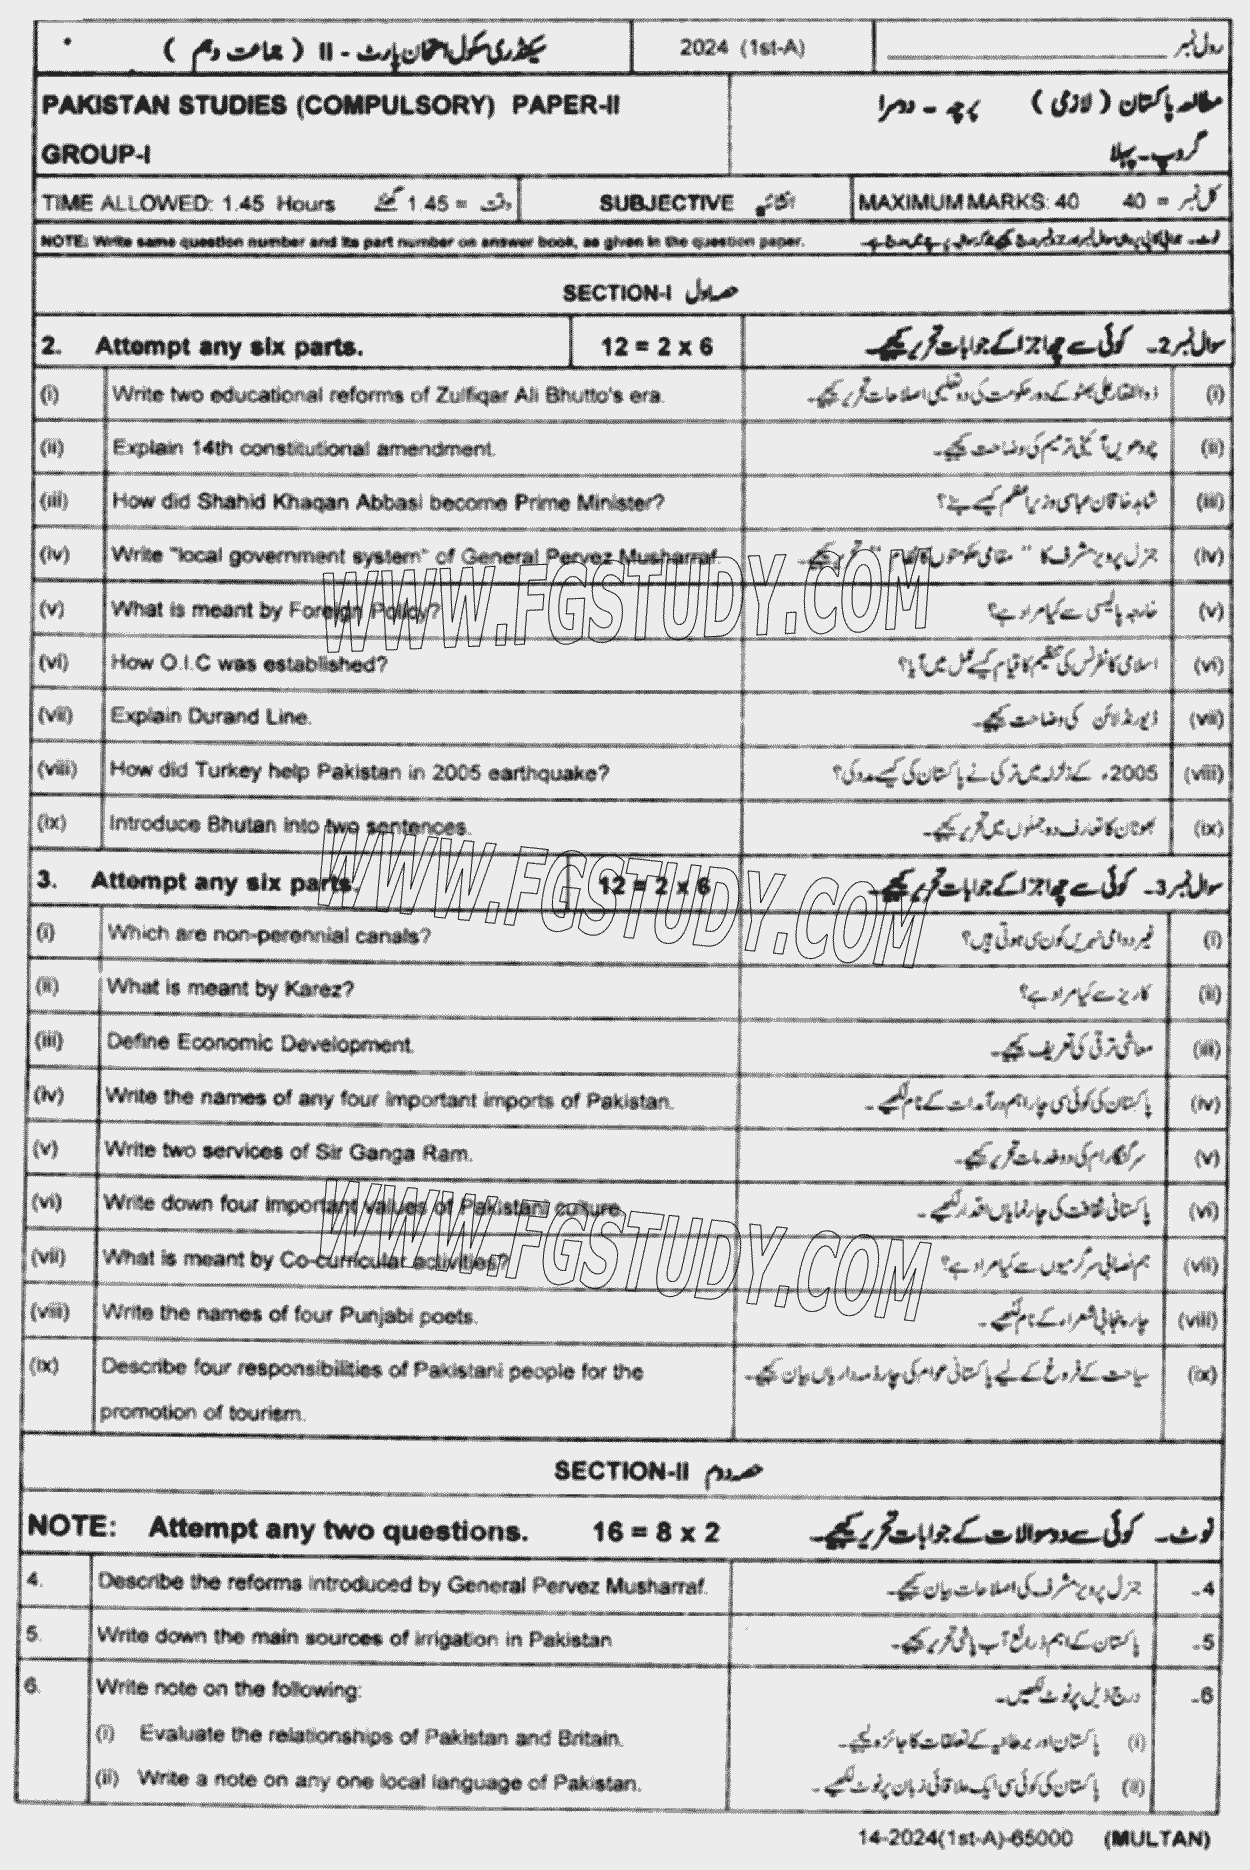 سیکنڈری سکول امتحان پارٹ - II ( جماعت دہم ) 2024 (1st-A) رول نمبر
PAKISTAN STUDIES (COMPULSORY) PAPER-II مطالعہ پاکستان ( لازمی ) پرچہ - دوسرا
GROUP-I گروپ - پہلا
TIME ALLOWED: 1.45 Hours وقت = 1.45 گھنٹے SUBJECTIVE انشائیہ MAXIMUM MARKS: 40 کل نمبر = 40
NOTE: Write same question number and its part number on answer book, as given in the question paper.
SECTION-I حصہ اول
2. Attempt any six parts. 12 = 2 x 6 سوال نمبر 2۔ کوئی سے چھ اجزا کے جوابات تحریر کیجیے۔
(i) Write two educational reforms of Zulfiqar Ali Bhutto's era. ذوالفقار علی بھٹو کے دور حکومت کی دو تعلیمی اصلاحات تحریر کیجیے۔ (i)
(ii) Explain 14th constitutional amendment. چودھویں آئینی ترمیم کی وضاحت کیجیے۔ (ii)
(iii) How did Shahid Khaqan Abbasi become Prime Minister? شاہد خاقان عباسی وزیراعظم کیسے بنے؟ (iii)
(iv) Write "local government system" of General Pervez Musharraf. جنرل پرویز مشرف کا " مقامی حکومتوں کا نظام " تحریر کیجیے۔ (iv)
(v) What is meant by Foreign Policy? خارجہ پالیسی سے کیا مراد ہے؟ (v)
(vi) How O.I.C was established? اسلامی کانفرنس کی تنظیم کا قیام کیسے عمل میں آیا؟ (vi)
(vii) Explain Durand Line. ڈیورنڈ لائن کی وضاحت کیجیے۔ (vii)
(viii) How did Turkey help Pakistan in 2005 earthquake? 2005ء کے زلزلہ میں ترکی نے پاکستان کی کیسے مدد کی؟ (viii)
(ix) Introduce Bhutan into two sentences. بھوٹان کا تعارف دو جملوں میں تحریر کیجیے۔ (ix)
3. Attempt any six parts. 12 = 2 x 6 سوال نمبر 3۔ کوئی سے چھ اجزا کے جوابات تحریر کیجیے۔
(i) Which are non-perennial canals? غیر دوامی نہریں کون سی ہوتی ہیں؟ (i)
(ii) What is meant by Karez? کاریز سے کیا مراد ہے؟ (ii)
(iii) Define Economic Development. معاشی ترقی کی تعریف کیجیے۔ (iii)
(iv) Write the names of any four important imports of Pakistan. پاکستان کی کوئی سی چار اہم درآمدات کے نام لکھیے۔ (iv)
(v) Write two services of Sir Ganga Ram. سر گنگا رام کی دو خدمات تحریر کیجیے۔ (v)
(vi) Write down four important values of Pakistani culture. پاکستانی ثقافت کی چار نمایاں اقدار لکھیے۔ (vi)
(vii) What is meant by Co-curricular activities? ہم نصابی سرگرمیوں سے کیا مراد ہے؟ (vii)
(viii) Write the names of four Punjabi poets. چار پنجابی شعراء کے نام لکھیے۔ (viii)
(ix) Describe four responsibilities of Pakistani people for the سیاحت کے فروغ کے لیے پاکستانی عوام کی چار ذمہ داریاں بیان کیجیے۔ (ix)
promotion of tourism.
SECTION-II حصہ دوم
NOTE: Attempt any two questions. 16 = 8 x 2 نوٹ۔ کوئی سے دو سوالات کے جوابات تحریر کیجیے۔
4. Describe the reforms introduced by General Pervez Musharraf. جنرل پرویز مشرف کی اصلاحات بیان کیجیے۔ 4۔
5. Write down the main sources of irrigation in Pakistan پاکستان کے اہم ذرائع آب پاشی تحریر کیجیے۔ 5۔
6. Write note on the following: درج ذیل پر نوٹ لکھیں۔ 6۔
(i) Evaluate the relationships of Pakistan and Britain. پاکستان اور برطانیہ کے تعلقات کا جائزہ لیجیے۔ (i)
(ii) Write a note on any one local language of Pakistan. پاکستان کی کوئی سی ایک علاقائی زبان پر نوٹ لکھیے۔ (ii)
14-2024(1st-A)-65000 (MULTAN)
WWW.FGSTUDY.COM
WWW.FGSTUDY.COM
WWW.FGSTUDY.COM